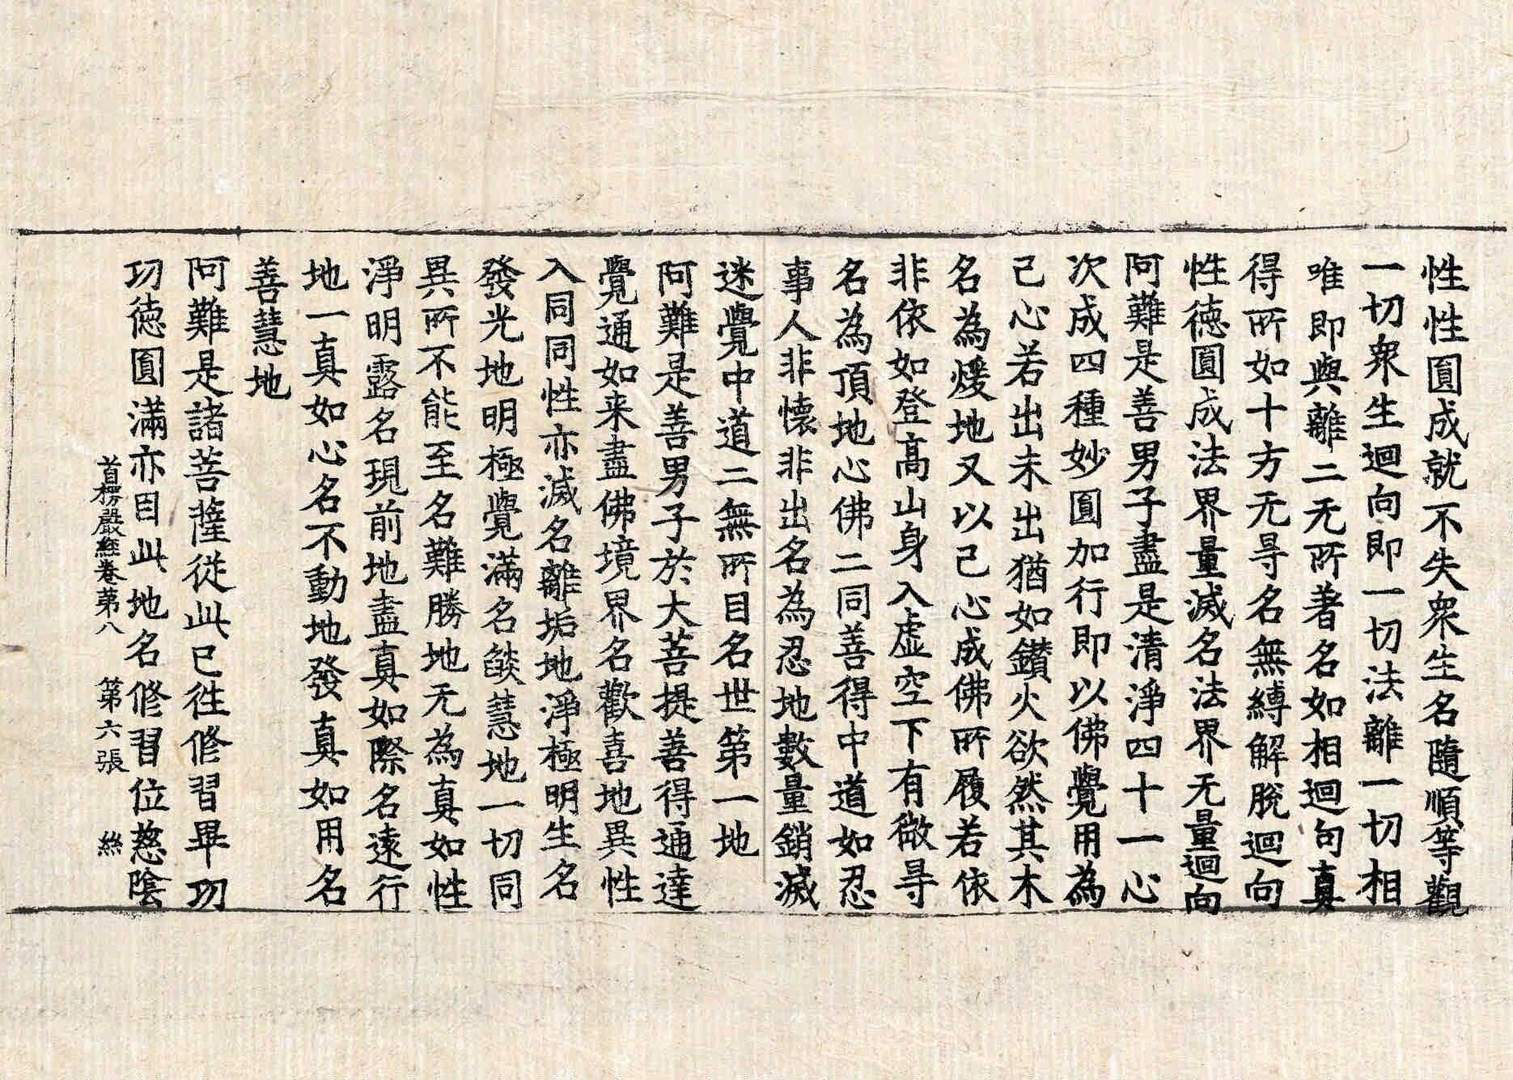 性性圓成就不失衆生名隨順等觀
一切衆生迴向即一切法離一切相
唯即與離二无所著名如相迴向真
得所如十方无㝵名無縛解脫迴向
性德圓成法界量滅名法界无量迴向
阿難是善男子盡是清淨四十一心
次成四種妙圓加行即以佛覺用為
己心若出未出猶如鑽火欲然其木
名為煖地又以己心成佛所履若依
非依如登高山身入虛空下有微㝵
名為頂地心佛二同善得中道如忍
事人非懷非出名為忍地數量銷滅
迷覺中道二無所目名世第一地
阿難是善男子於大菩提善得通達
覺通如来盡佛境界名歡喜地異性
入同同性亦滅名離垢地淨極明生名
發光地明極覺滿名燄慧地一切同
異所不能至名難勝地无為真如性
淨明露名現前地盡真如際名遠行
地一真如心名不動地發真如用名
善慧地
阿難是諸菩薩從此已往修習畢功
功德圓滿亦目此地名修習位慈陰
首楞嚴經卷第八 第六張 絲